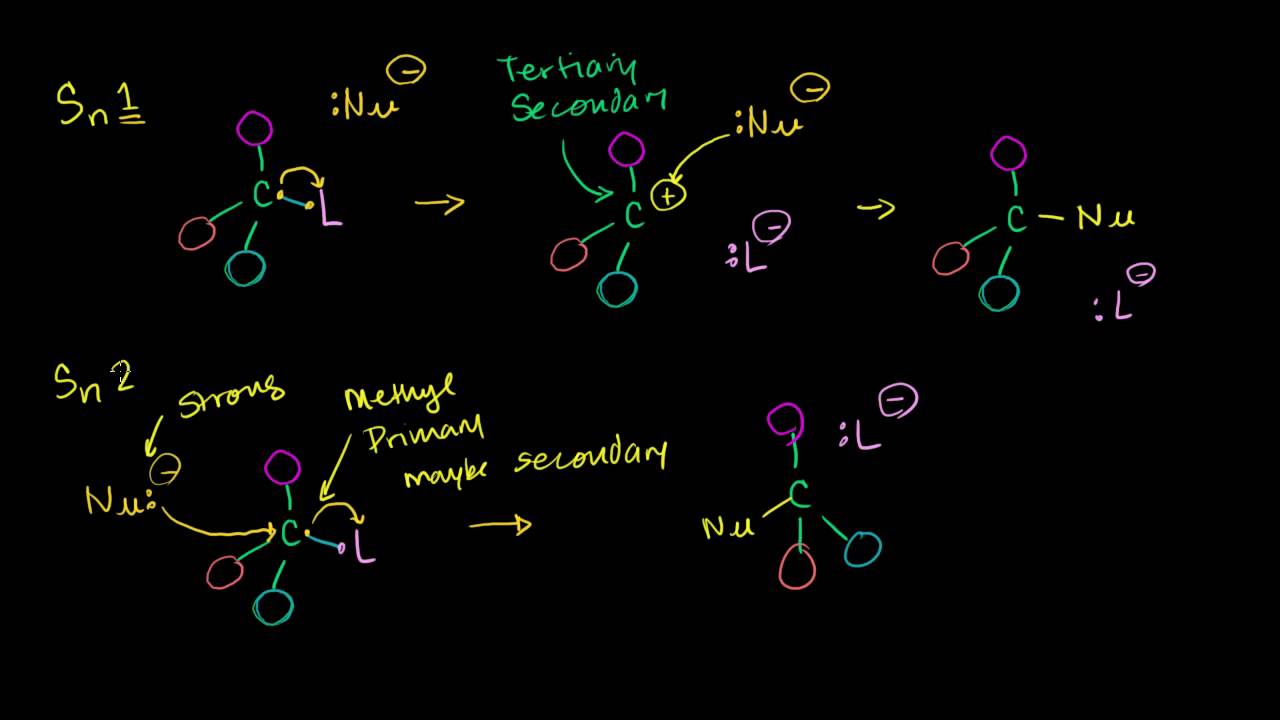 Sn1
:Nu −
C L
Tertiary
Secondary
:Nu −
C +
:L −
C — Nu
:L −
Sn2
strong
Methyl
Primary
maybe secondary
Nu: −
C L
:L −
C
Nu